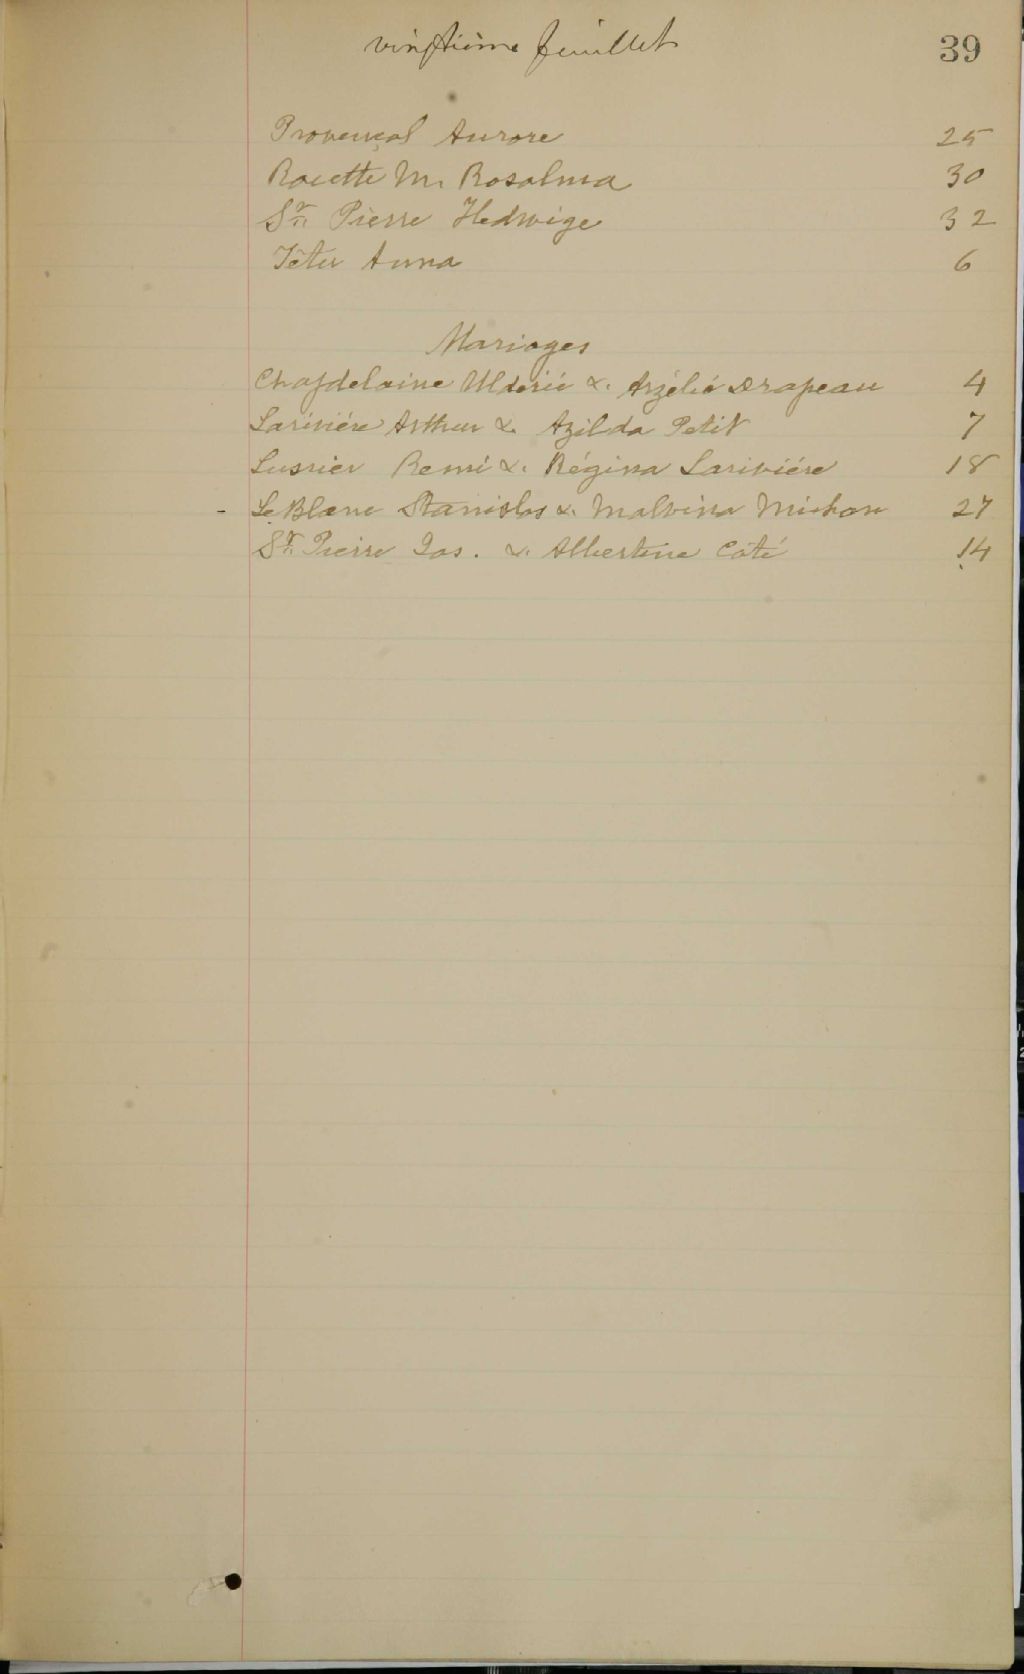 vingtième feuillet 39
Provençal Aurore 25
M. Rosalma 30
St. Pierre Hedwige 32
Têtu Anna 6
Mariages
Chapdelaine Uldéric & Arzélie Drapeau 4
Larivière Arthur & Azilda Petit 7
Lussier Remi & Régina Larivière 18
- LeBlanc Stanislas & Malvina Michon 27
St. Pierre Jos. & Albertine Côté 14